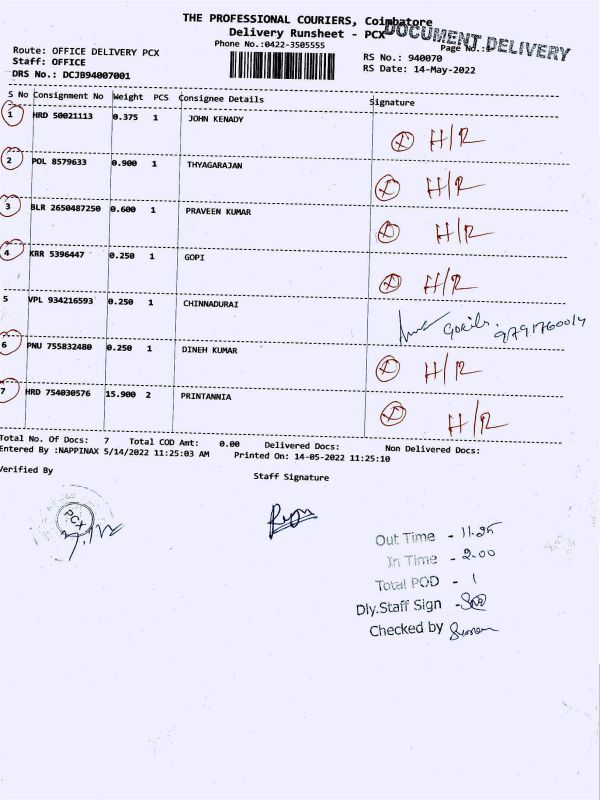 THE PROFESSIONAL COURIERS, Coimbatore
Delivery Runsheet - PCX
DOCUMENT DELIVERY
Phone No.:0422-3505555
Page No.:
Route: OFFICE DELIVERY PCX
Staff: OFFICE
DRS No.: DCJB94007001
RS No.: 940070
RS Date: 14-May-2022
S No Consignment No Weight PCS Consignee Details Signature
1 HRD 50021113 0.375 1 JOHN KENADY H/R
2 POL 8579633 0.900 1 THYAGARAJAN H/R
3 BLR 2650487250 0.600 1 PRAVEEN KUMAR H/R
4 KRR 5396447 0.250 1 GOPI H/R
5 VPL 934216593 0.250 1 CHINNADURAI 9791760014
6 PNU 755832480 0.250 1 DINEH KUMAR H/R
7 HRD 754030576 15.900 2 PRINTANNIA H/R
Total No. Of Docs: 7 Total COD Amt: 0.00 Delivered Docs: Non Delivered Docs:
Entered By :NAPPINAX 5/14/2022 11:25:03 AM Printed On: 14-05-2022 11:25:10
Verified By
Staff Signature
PCX
Out Time - 11.25
In Time - 2.00
Total POD - 1
Dly.Staff Sign -
Checked by